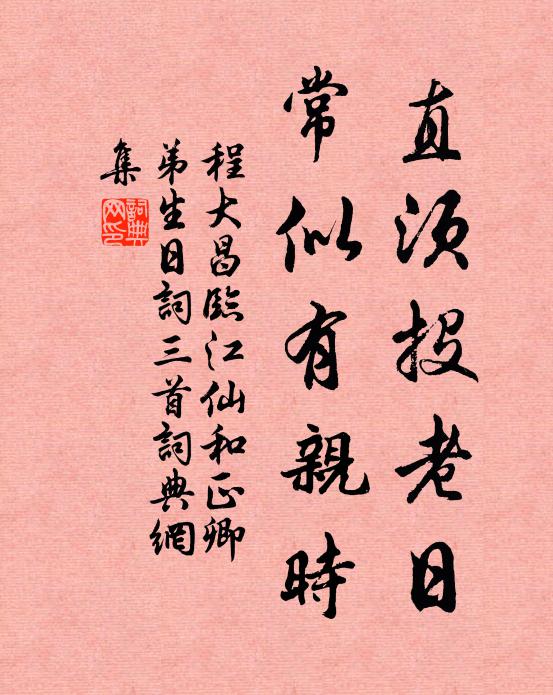 直須投老日
常似有親時
程大昌臨江仙和正卿
弟生日詞三首詞典網
集
詞典網印